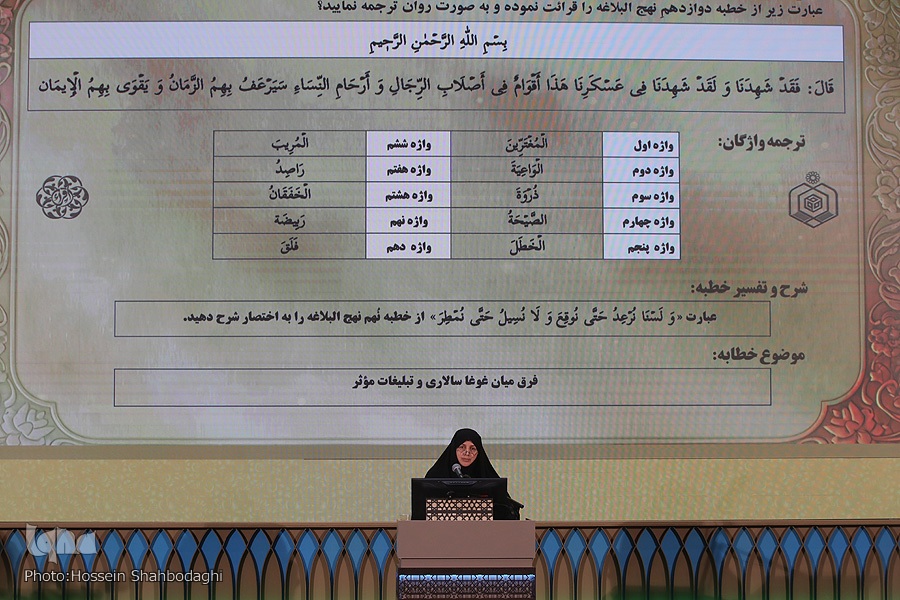 عبارت زیر از خطبه دوازدهم نهج البلاغه را قرائت نموده و به صورت روان ترجمه نمایید؟
بِسْمِ اللّٰهِ الرَّحْمٰنِ الرَّحِیمِ
قَالَ: فَقَدْ شَهِدَنَا وَ لَقَدْ شَهِدَنَا فِی عَسْکَرِنَا هَذَا أَقْوَامٌ فِی أَصْلَابِ الرِّجَالِ وَ أَرْحَامِ النِّسَاءِ سَیَرْعَفُ بِهِمُ الزَّمَانُ وَ یَقْوَی بِهِمُ الْإِیمَان
ترجمه واژگان:
واژه اول الْمُغْتَرِّینَ واژه ششم الْمُرِیبَ
واژه دوم الْوَاعِیَةَ واژه هفتم رَاصِدُ
واژه سوم ذُرْوَةَ واژه هشتم الْخَفَقَانُ
واژه چهارم الصَّیْحَةُ واژه نهم رَبِیضَة
واژه پنجم الْخَطَلَ واژه دهم فَلَقَ
شرح و تفسیر خطبه:
عبارت «وَ لَسْنَا نُرْعِدُ حَتَّی نُوقِعَ وَ لَا نُسِیلُ حَتَّی نُمْطِرَ» از خطبه نهم نهج البلاغه را به اختصار شرح دهید.
موضوع خطابه:
فرق میان غوغا سالاری و تبلیغات مؤثر
iqna
Photo:Hossein Shahbodaghi